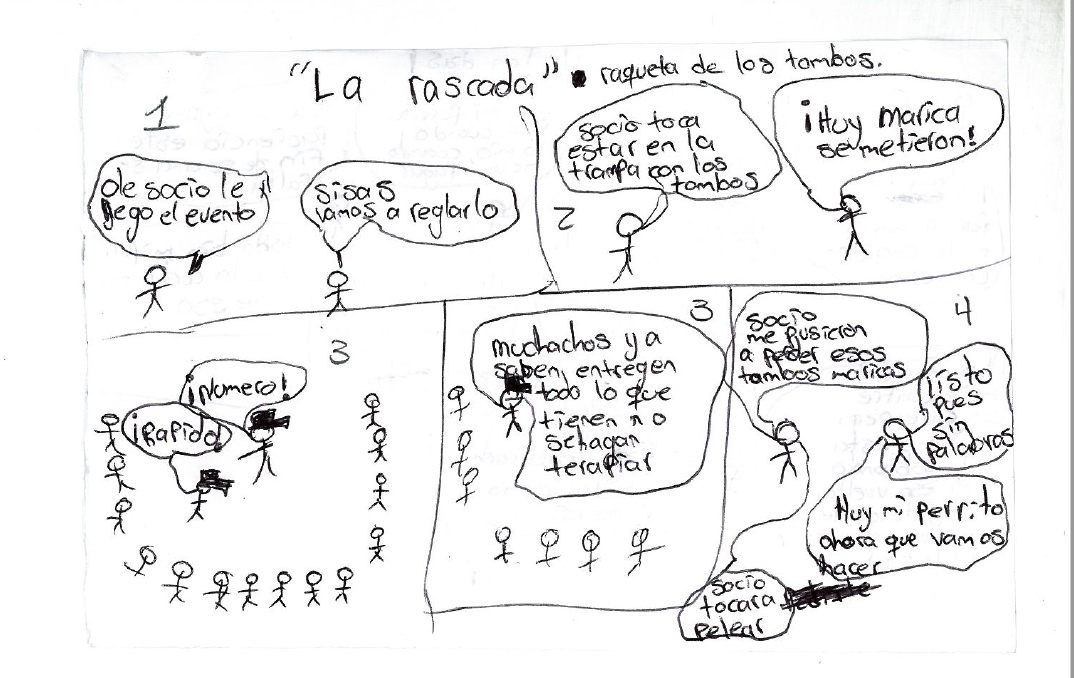 "La rascada" raqueta de los tombos.
1
ole socio le
llego el evento
sisas
vamos a reglarlo
2
socio toca
estar en la
trampa con los
tombos
¡Huy marica
se metieron!
3
¡Numero!
¡Rapido!
3
muchachos ya
saben, entregen
todo lo que
tienen no
sehagan
terapiar
4
socio
me pusieron
a perder esos
tombos maricas
¡isto
pues
sin
palabras
Huy mi perrito
ahora que vamos
hacer
socio
tocara
pelear